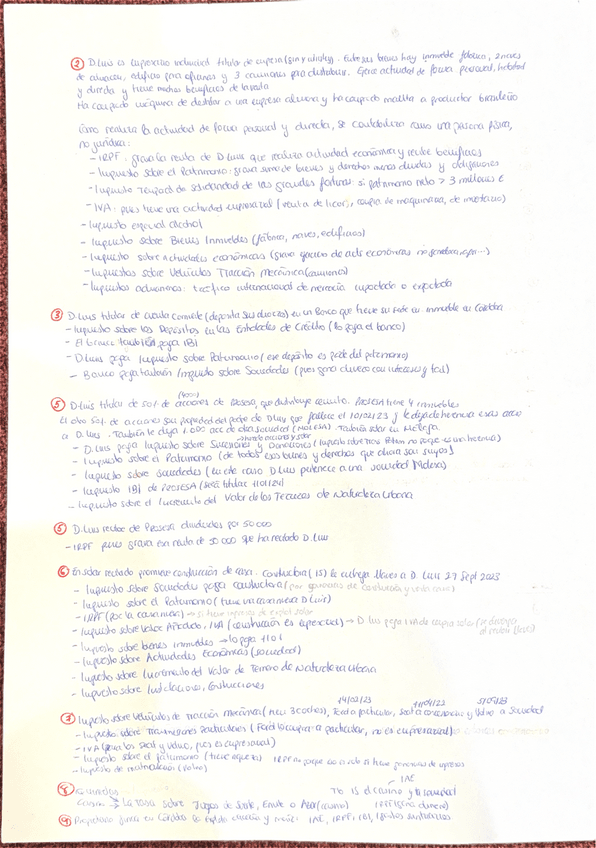 ② D. Luis es empresario individual titular de empresa (gin y whisky). Entre sus bienes hay inmueble fábrica, 2 naves
de almacén, edificios para oficinas y 3 camiones para distribuir. Ejerce actividad de forma personal, habitual
y directa y tiene muchos beneficios de la venta
Ha comprado máquina de destilar a una empresa alemana y ha comprado malta a productor brasileño
Como realiza la actividad de forma personal y directa, se contabiliza como una persona física,
no jurídica:
- IRPF: grava la renta de D. Luis que realiza actividad económica y recibe beneficios
- Impuesto sobre el Patrimonio: grava suma de bienes y derechos menos deudas y obligaciones
- Impuesto Temporal de solidaridad de las grandes fortunas si patrimonio neto > 3 millones €
- IVA: pues tiene una actividad empresarial (venta de licor, compra de maquinaria, de
- Impuesto especial alcohol
- Impuesto sobre Bienes Inmuebles (fábrica, naves, edificios)
- Impuesto sobre actividades económicas (grava
- Impuestos sobre Vehículos Tracción Mecánica (camiones)
- Impuestos aduaneros: tráfico internacional de mercancía importada o exportada
③ D. Luis titular de cuenta corriente (deposita sus ahorros) en un Banco que tiene su sede en inmueble en Córdoba
- Impuesto sobre los Depósitos en las Entidades de Crédito (lo paga el banco)
- El banco también paga IBI
- D. Luis paga Impuesto sobre Patrimonio (ese depósito es parte del patrimonio)
- Banco paga también Impuesto sobre Sociedades (pues gana dinero con intereses y tal)
(4000)
⑤ D. Luis titular de 50% de acciones de Prosesa, que distribuye cemento. PROSESA tiene 4 inmuebles
El otro 50% de acciones son propiedad del padre de D. Luis que fallece el 10/02/23 y le deja de herencia esas acc
a D. Luis. También le deja 1.000 acc de otra sociedad (MOLESA). También solar en
hereda acciones y solar
- D. Luis paga Impuesto sobre Sucesiones y Donaciones (Impuesto sobre Trans Patrim no porque es una herencia)
- Impuesto sobre el Patrimonio (de todos esos bienes y derechos que ahora son suyos)
- Impuesto sobre Sociedades (en este caso D. Luis pertenece a una sociedad Molesa)
- Impuesto IBI de PROSESA (será titular 1/01/24)
- Impuesto sobre el Incremento del Valor de los Terrenos de Naturaleza Urbana
⑤ D. Luis recibe de Prosesa dividendos por 50.000
- IRPF pues grava esa renta de 50.000 que ha recibido D. Luis
⑥ En solar recibido promueve construcción de casa. Constructora (IS) le entrega llaves a D. Luis 27 Sept 2023
- Impuesto sobre Sociedades paga constructora (por ganancias de construcción y venta casa)
- Impuesto sobre el Patrimonio (tiene una casa nueva D. Luis)
- IRPF (por la casa nueva) → si tiene
- Impuesto sobre Valor Añadido, IVA (construcción es empresarial) → D. Luis paga IVA de
- Impuesto sobre bienes inmuebles → lo paga 1/01
- Impuesto sobre Actividades Económicas (sociedad)
- Impuesto sobre Incremento del Valor de Terreno de Naturaleza Urbana
- Impuesto sobre Instalaciones, Construcciones
14/02/23 11/04/23 5/09/23
⑦ Impuesto sobre Vehículos de Tracción Mecánica (tiene 3 coches), Ford a particular, Seat a concesionario y Volvo a Sociedad
- Impuesto sobre Transmisiones Patrimoniales (Ford lo compra a particular, no es empresarial)
- IVA (para los Seat y Volvo, pues es empresarial)
- Impuesto sobre el Patrimonio (tiene IRPF no porque
- Impuesto de matriculación (Volvo)
IAE
⑧ Tb IS al casino y la sociedad
Casino → La Tasa sobre Juegos de Suerte, Envite o Azar (casino) IRPF (gana dinero)
⑨ Propietario finca en Córdoba IAE, IRPF, IBI,